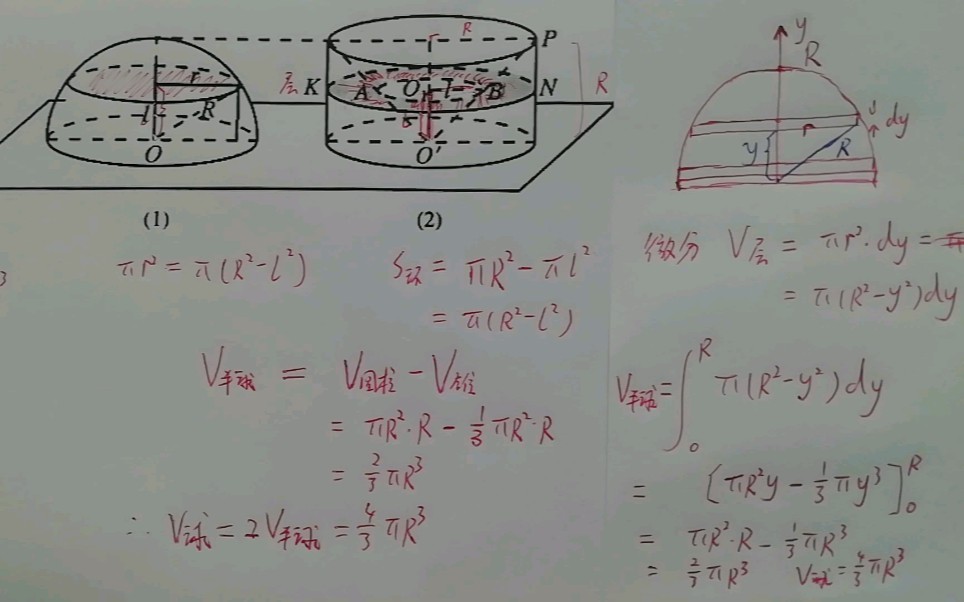 R
P
K
层
A
O
l
B
N
R
r
l
R
O
O'
(1)
(2)
πr² = π(R²-l²)
S环 = πR² - πl²
= π(R²-l²)
V半球 = V圆柱 - V锥
= πR²·R - 1/3 πR²·R
= 2/3 πR³
∴ V球 = 2V半球 = 4/3 πR³
y
R
dy
r
y
R
微分 V层 = πr²·dy =
= π(R²-y²)dy
V半球 = ∫₀ᴿ π(R²-y²)dy
= [πR²y - 1/3 πy³]₀ᴿ
= πR²·R - 1/3 πR³
= 2/3 πR³ V球 = 4/3 πR³